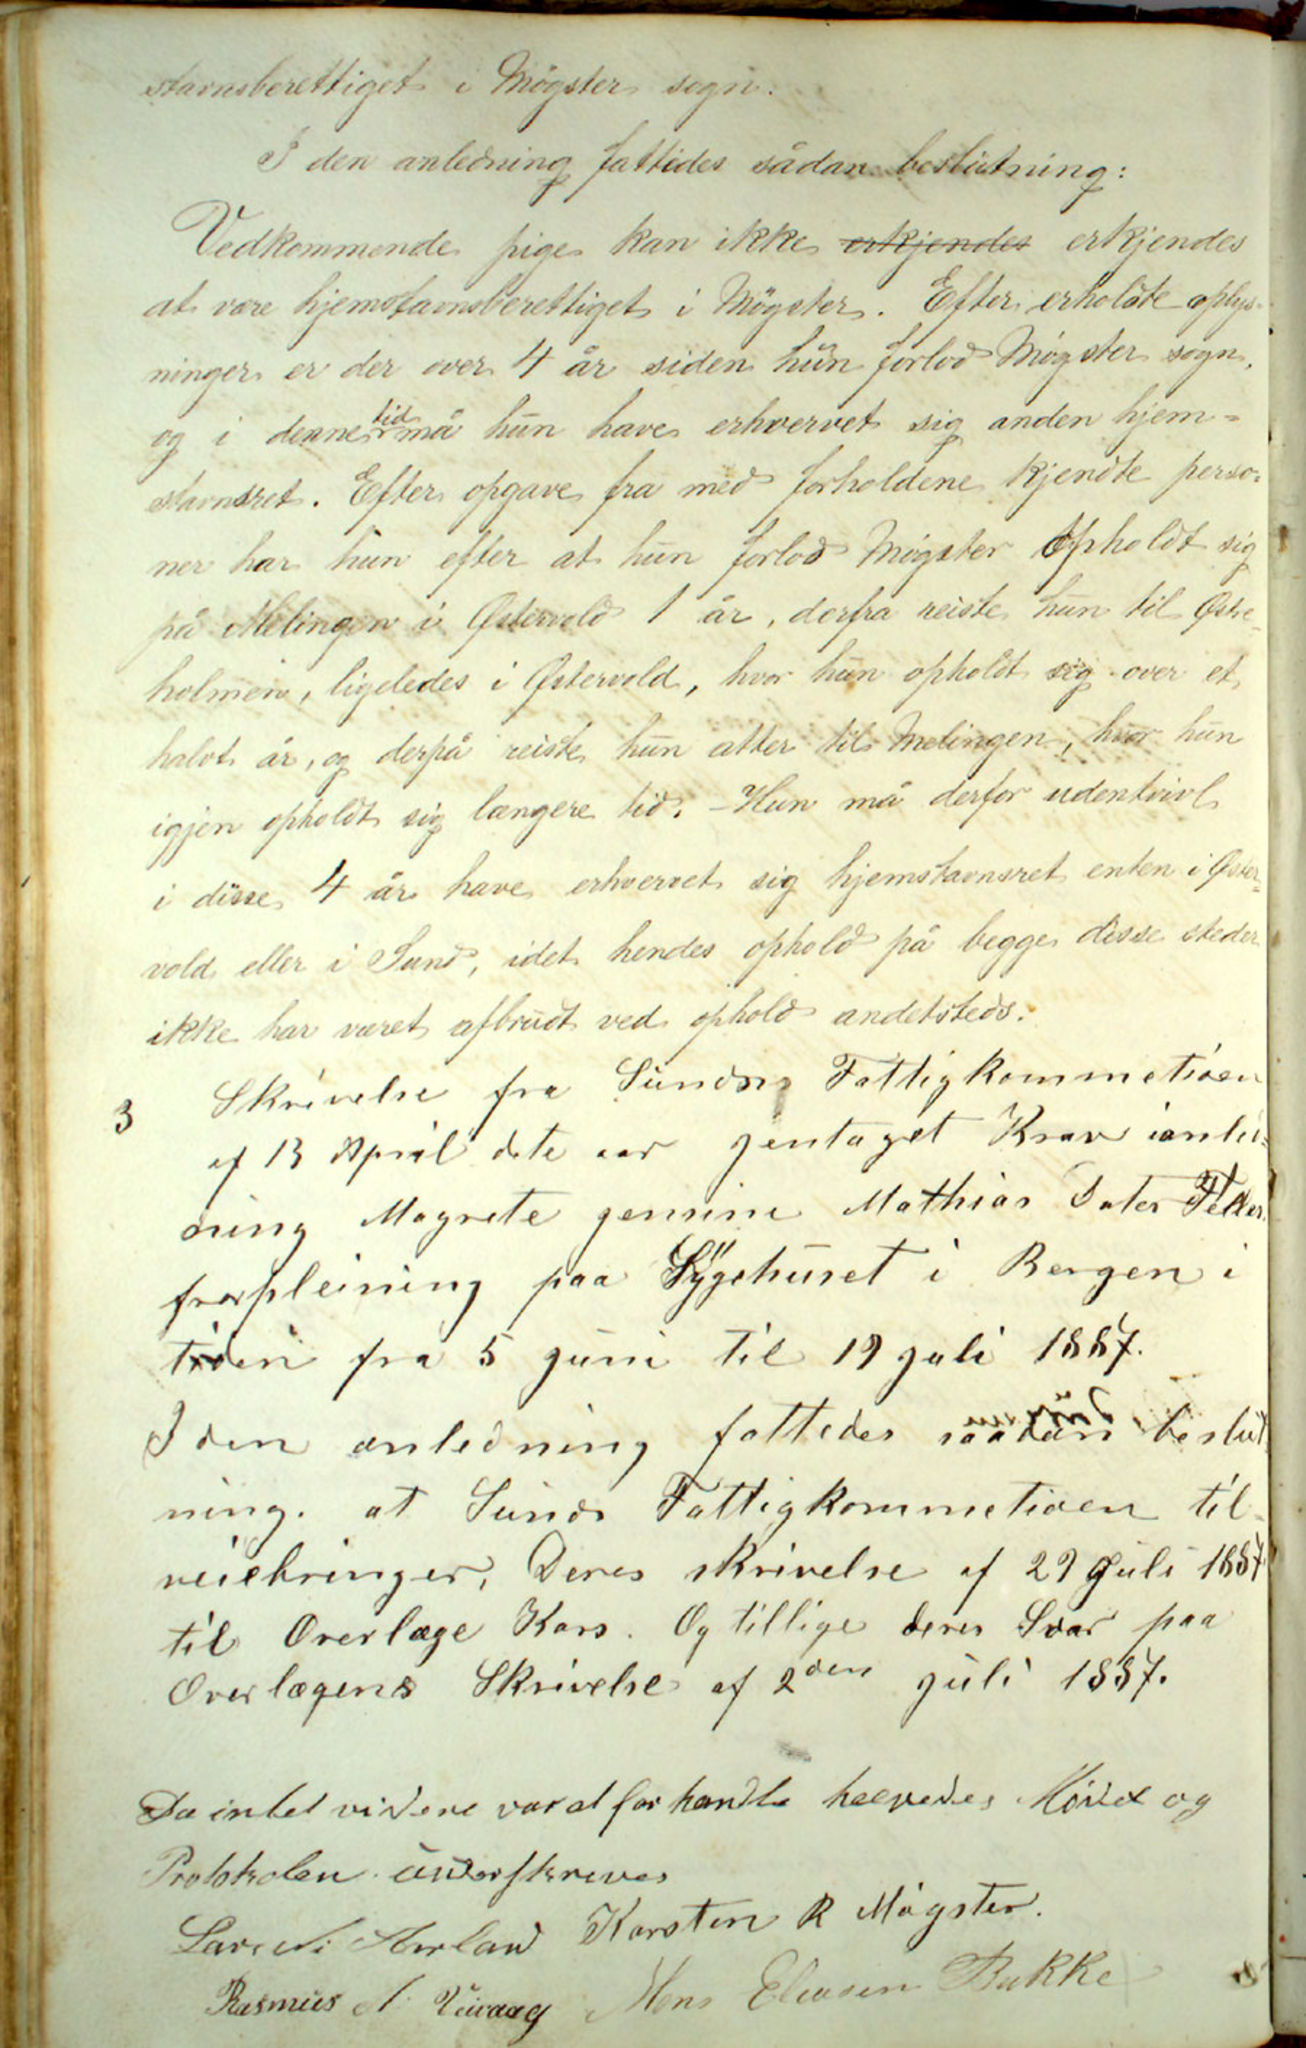 stavnsberettiget i Møgster sogn.
I den anledning fattedes sådan beslutning:
Vedkommende pige kan ikke erkjendes erkjendes
at være hjemstavnsberettiget i Møgster. Efter erholdte oplys-
ninger er der over 4 år siden hun forlod Møgster sogn,
og i denne tid må hun have erhvervet sig anden hjem=
stavnsret. Efter opgave fra med forholdene kjendte perso-
ner har hun efter at hun forlod Møgster opholdt sig
på Melingen i Østervold 1 år, derfra reiste hun til Østre-
holmen, ligeledes i Østervold, hvor hun opholdt sig over et
halvt år, og derpå reiste hun atter til Melingen, hvor hun
igjen opholdt sig længere tid. - Hun må derfor udentvivl
i disse 4 år have erhvervet sig hjemstavnsret enten i Øster=
vold eller i Sund, idet hendes ophold på begge disse steder
ikke har været afbrudt ved ophold andetsteds.
3 Skrivelse fra Sunds Fattigkommetioen
af 13 April dte aar gentaget Krav ianled=
ning Magrete Mathias Dater
forpleining paa Sygehuset i Bergen i
tiden fra 5 juni til 19 juli 1887.
I den anledning fattedes saadan beslut
ning. at Sunds Fattigkommetioen til-
veiebringer, Deres skrivelse af 29 Juli 1887
til Overlæge Kars. Og tillige deres Svar paa
Overlægens Skrivelse af 2den juli 1887.
Da intet videre var at forhandle hævedes Mødet og
Protokolen underskreves
Karsten R Møgster.
Rasmus A. Mons Eliasen Bakke